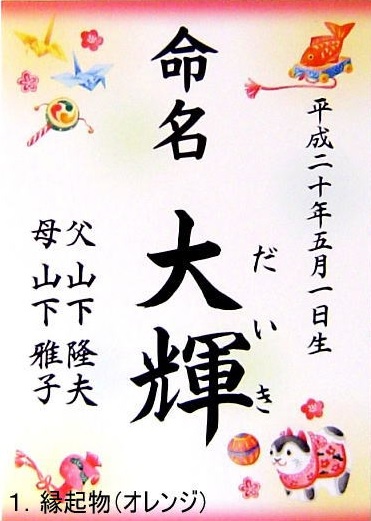 平成二十年五月一日生
命名
大輝
だいき
父 山下 隆夫
母 山下 雅子
1. 縁起物(オレンジ)